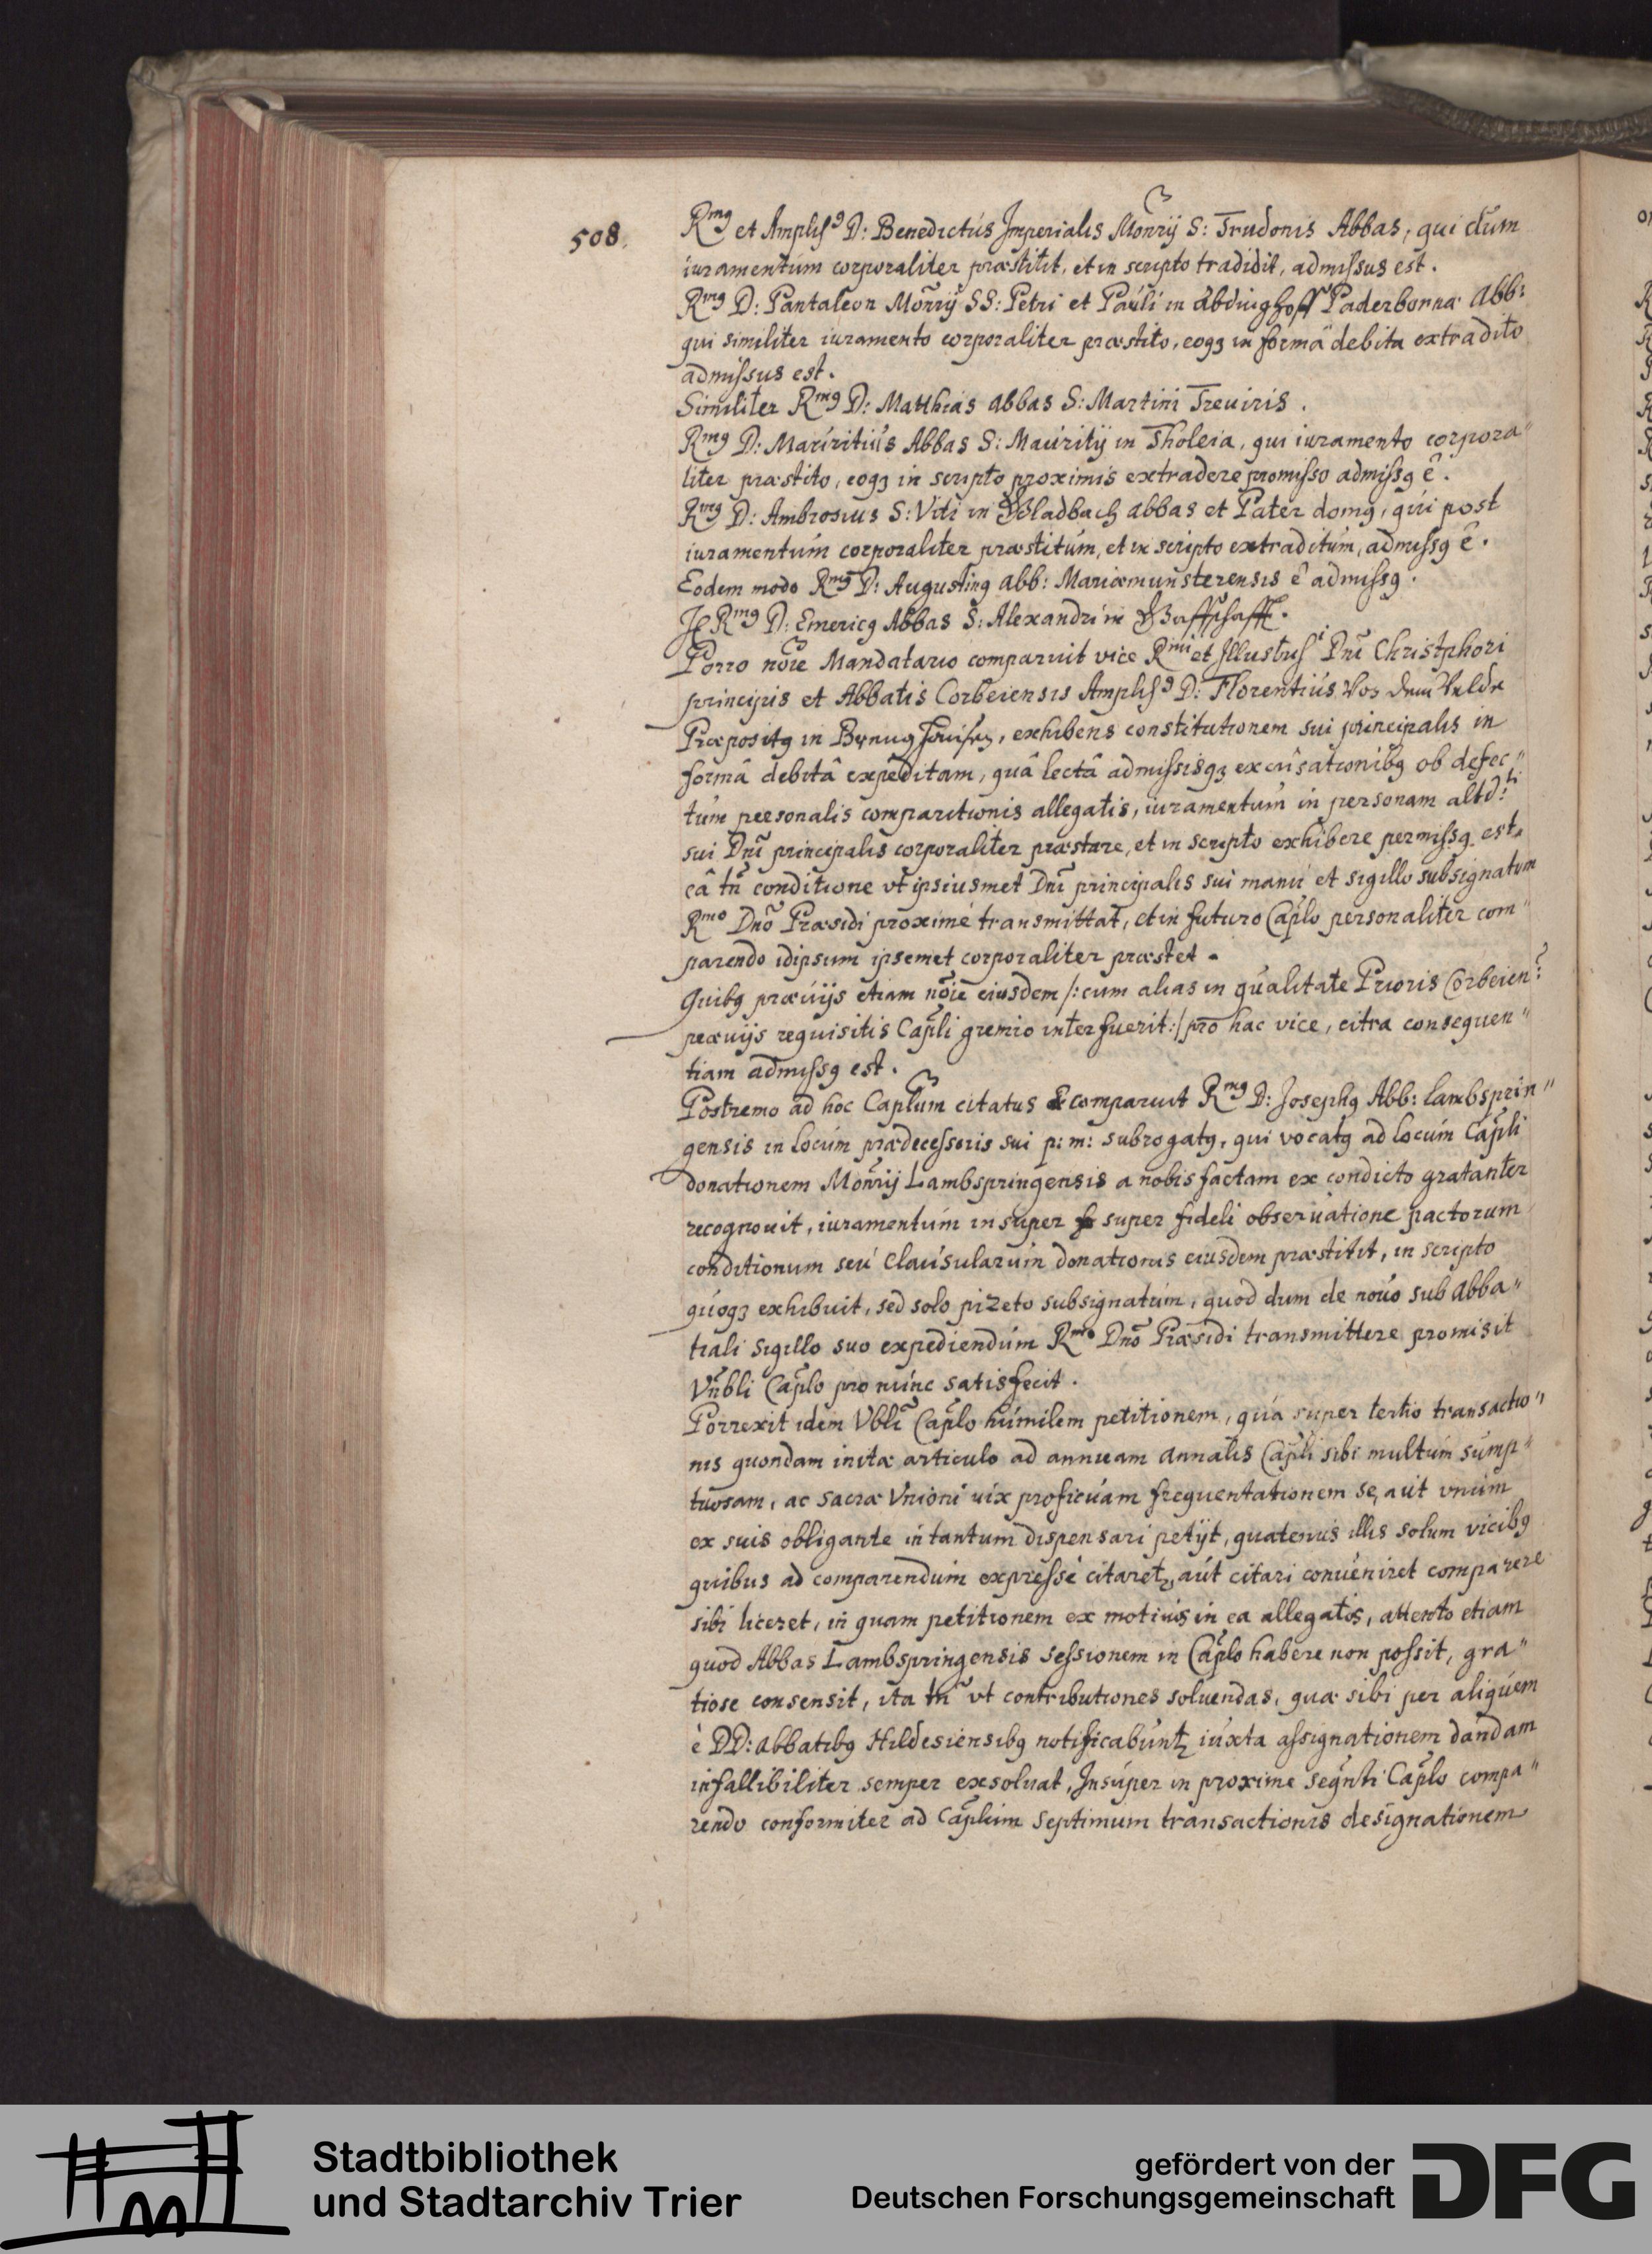 508.
Rmg et Amplisg D: Benedictús Imperialis Monrij S: Trudonis Abbas, qui dum
iuramentúm corporaliter præstitit, et in scripto tradidit, admissus est.
Rmg D: Pantaleon Monrij SS: Petri et Paúli in Abdinghoff Paderbonna Abb:
qui similiter iuramento corporaliter præstito, eoqз in formâ debita extradito
admissus est.
Similiter Rmg D: Matthias abbas S: Martini Treuiris.
Rmg D: Maúritiús Abbas S: Maúritij in Tholeia, qui iuramento corpora"
liter præstito, eoqз in scripto proximis extradere promisso admissg ê.
Rmg D: Ambrosius S: Viti in Gladbach abbas et Pater domg, qúi post
iuramentúm corporaliter præstitúm, et in scripto extraditúm, admissg ê.
Eodem modo Rmg D: Augusting abb: Mariæmunsterensis ê admissg.
It Rmg D: Emericg Abbas S: Alexandri in
Porro noie Mandatario comparuit vice Rmi et Illustrisi Dni Christphori
principis et Abbatis Corbeiensis Amplisg D: Florentiús Von dem Velde
Præpositg in, exhibens constitutionem sui principalis in
formâ debitâ expeditam, quâ lectâ admissisqз excúsationibg ob defec"
túm personalis comparitionis allegatis, iuramentúm in personam altd:ti
sui Dni principalis corporaliter præstare, et in scripto exhibere permissg est,
eâ tn conditione vt ipsiusmet Dni principalis sui manú et sigillo subsignatum
Rmo Dno Præsidi proximè transmittat, et in futuro Caplo personaliter com"
parendo idipsum ipsemet corporaliter præstet.
Quibg præúijs etiam noie eiúsdem /: cum alias in qúalitate Prioris Corbeien:
præuijs requisitis Capli gremio interfuerit :/ pro hac vice, citra consequen"
tiam admissg est.
Postremo ad hoc Caplum citatus & comparuit Rmg D: Josephg Abb: Lambsprin"
gensis in locúm prædecessoris sui p: m: subrogatg, qui vocatg ad locúm Capli
donationem Monrij Lambspringensis a nobis factam ex condicto gratanter
recognouit, iuramentúm insuper super fideli obseruatione pactorum
conditionum seú Claúsularúm donationis eiusdem præstitit, in scripto
qúoqз exhibuit, sed solo pizeto subsignatúm, quod dum de noúo sub abba"
tiali sigillo suo expediendúm Rmo Dno Præsidi transmittere promisit
Vnbli Caplo pro núnc satisfecit.
Porrexit idem Vbli Caplo húmilem petitionem, qúa super tertio transactio"
nis quondam initæ articulo ad annuam annalis Capli sibi multúm súmp"
tuosam, ac Sacræ Vnioni uix proficúam frequentationem se, aút vnúm
ex suis obligante in tantum dispensari petijt, quatenús illis solum vicibg
quibus ad comparendúm expressè citaretz, aút citari conueniret comparere
sibi liceret, in quam petitionem ex motiuis in ea allegatis, attento etiam
quod Abbas Lambspringensis sessionem in Caplo habere non possit, gra"
tiose consensit, ita tn vt contributiones soluendas, quæ sibi per aliqúem
è DD: abbatibg Hildesiensibg notificabúntz iúxta assignationem dandam
infallibiliter semper exsoluat, Insúper in proxime seqnti Caplo compa"
rendo conformiter ad Caplum septimum transactionis designationem
Stadtbibliothek
und Stadtarchiv Trier
gefördert von der
Deutschen Forschungsgemeinschaft
DFG